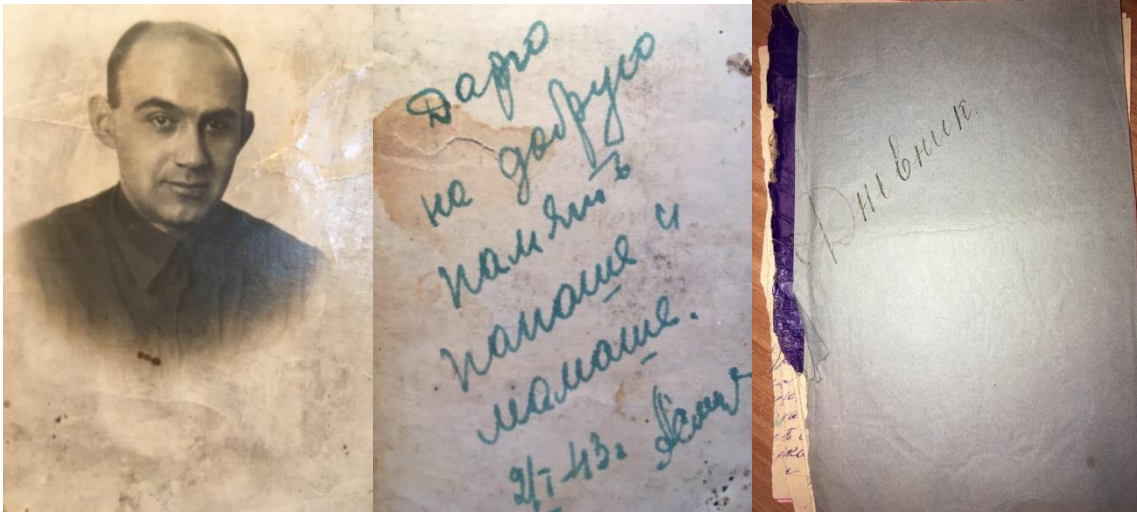 Дарю
на добрую
память
папаше и
мамаше.
2/I-43г
Дневник.